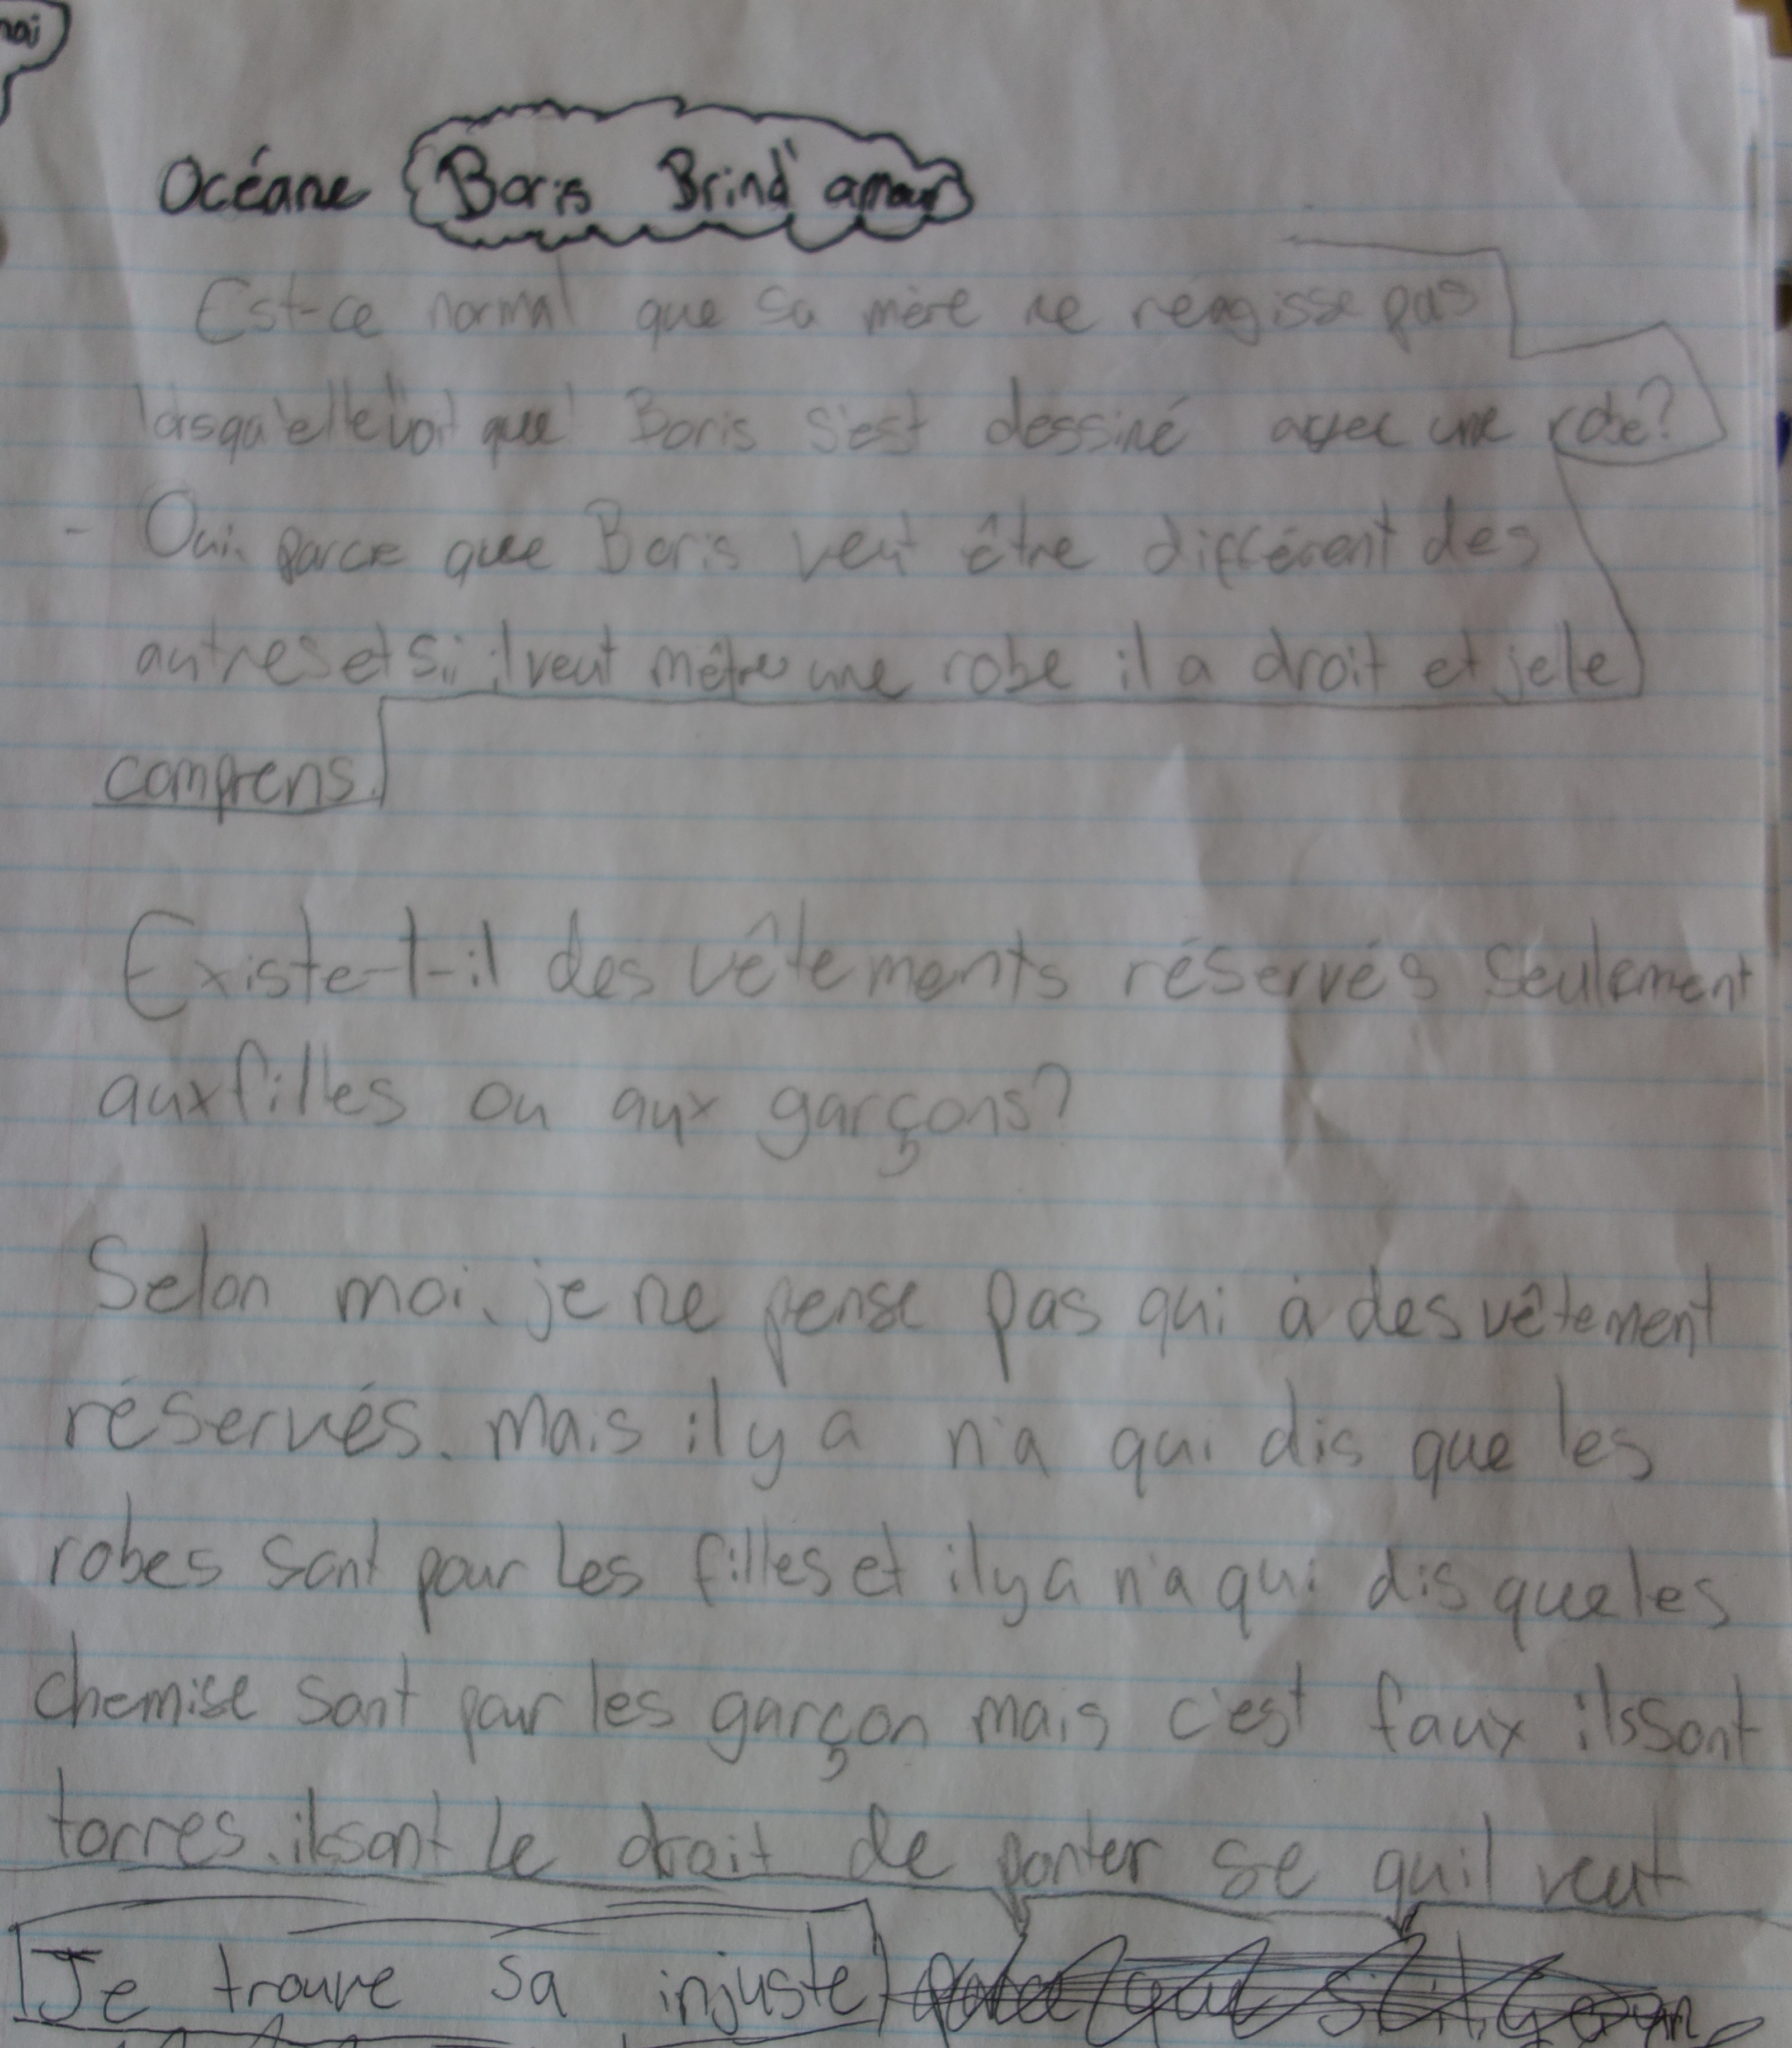 moi
Océane Boris Brind'amour
Est-ce normal que sa mère ne réagisse pas
lorsqu'elle voit que Boris s'est dessiné avec une robe?
- Oui, parce que Boris veut être différent des
autres et si il veut mêtre une robe il a droit et je le
comprens.
Existe-t-il des vêtements réservés seulement
aux filles ou aux garçons?
Selon moi, je ne pense pas qui à des vêtement
réservés. Mais il y a n'a qui dis que les
robes sont pour les filles et il y a n'a qui dis que les
chemise sont pour les garçon mais c'est faux ils sont
torres. ils ont le droit de porter se qu'il veut
Je trouve sa injuste